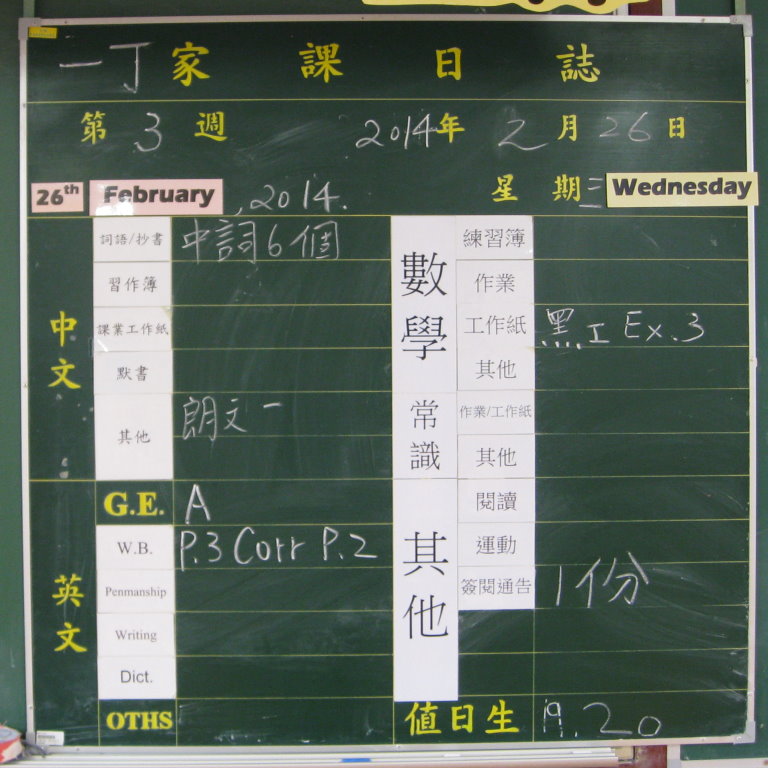 一丁家課日誌
第3週 2014年2月26日
26th February, 2014. 星期三 Wednesday
中文
詞語/抄書 中詞6個
習作簿
課業工作紙
默書
其他 朗文一
英文
G.E. A
W.B. P.3 Corr P.2
Penmanship
Writing
Dict.
OTHS
數學
練習簿
作業
工作紙 黑工 Ex.3
其他
常識
作業/工作紙
其他
其他
閱讀
運動
簽閱通告 1份
值日生 19.20